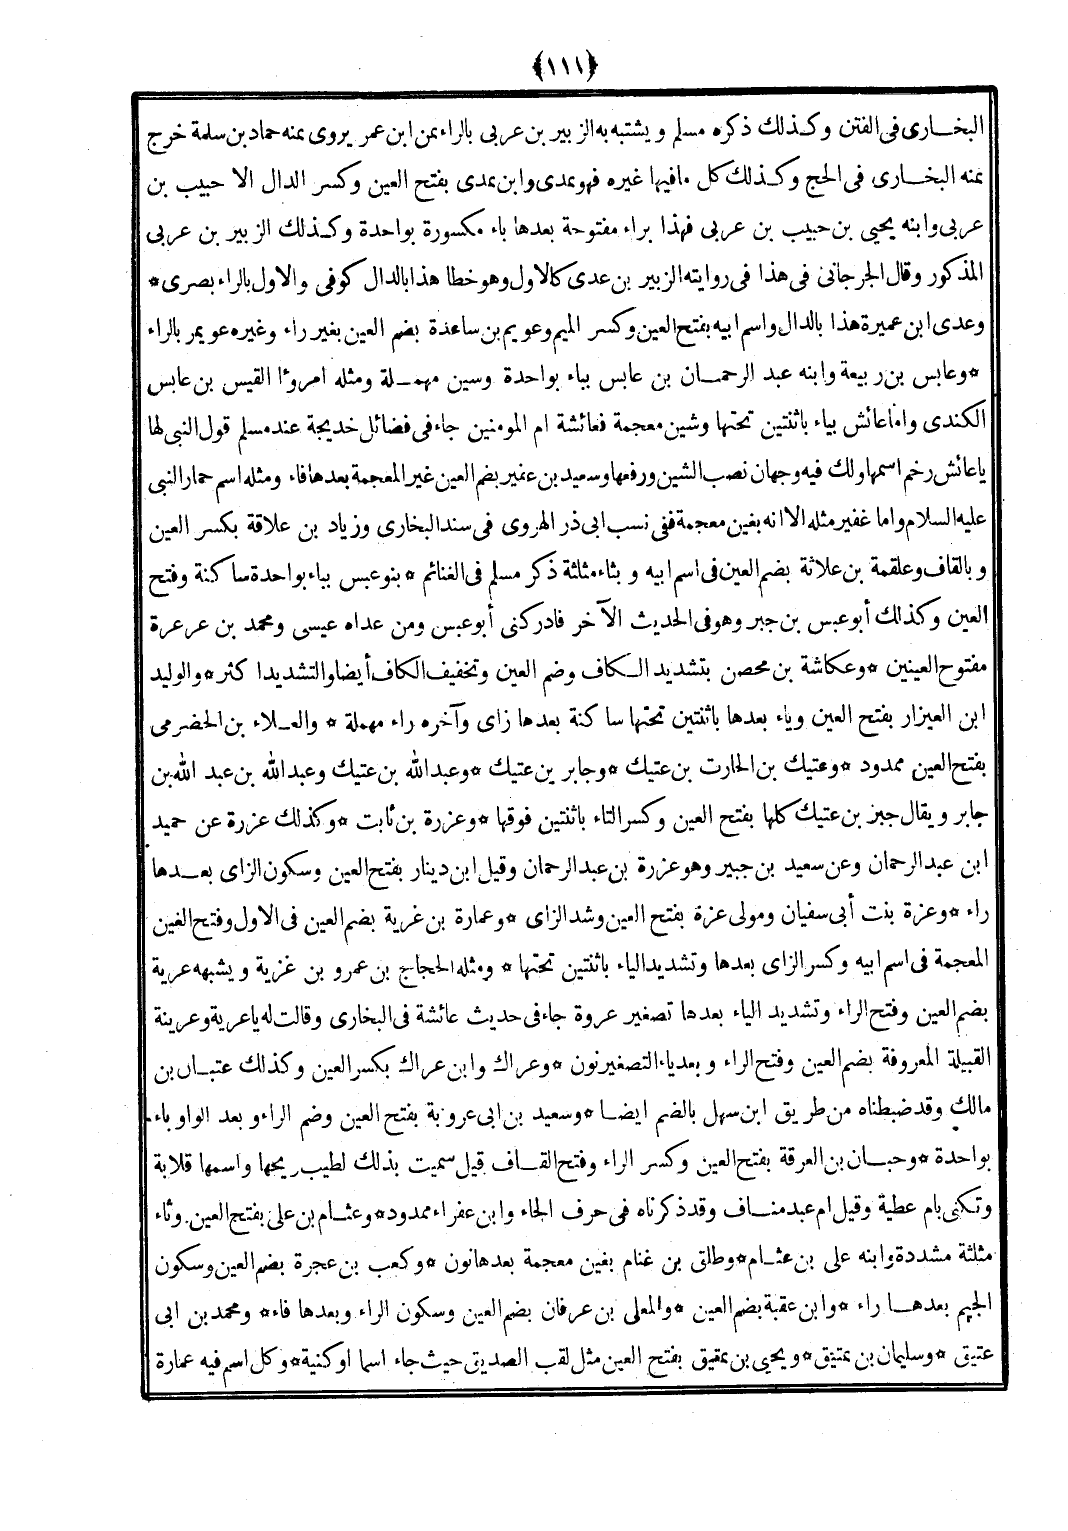 ﴿١١١﴾
البخارى فى الفتن وكذلك ذكره مسلم ويشتبه به الزبير بن عربى بالراء عن ابن عمر يروى عنه حماد بن سلمة خرج
عنه البخارى فى الحج وكذلك كل مافيها غيره فهو عدى وابن عدى بفتح العين وكسر الدال الا حبيب بن
عربى وابنه يحيى بن حبيب بن عربى فهذا براء مفتوحة بعدها باء مكسورة بواحدة وكذلك الزبير بن عربى
المذكور وقال الجرجانى فى هذا فى روايته الزبير بن عدى كالاول وهو خطا هذا بالدال كوفى والاول بالراء بصرى *
وعدى ابن عميرة هذا بالدال واسم ابيه بفتح العين وكسر الميم وعويم بن ساعدة بضم العين بغير راء وغيره عويمر بالراء
* وعابس بن ربيعة وابنه عبد الرحمان بن عابس بباء بواحدة وسين مهملة ومثله امروٴا القيس بن عابس
الكندى واما عائش بياء باثنتين تحتها وشين معجمة فعائشة ام المومنين جاء فى فضائل خديجة عند مسلم قول النبى لها
ياعائش رخم اسمها ولك فيه وجهان نصب الشين ورفعها وسعيد بن عفير بضم العين غير المعجمة بعدها فاء ومثله اسم حمار النبى
عليه السلام واما غفير مثله الا انه بغين معجمة ففى نسب ابى ذر الهروى فى سند البخارى وزياد بن علاقة بكسر العين
وبالقاف وعلقمة بن علاثة بضم العين فى اسم ابيه وبثاء مثلثة ذكر مسلم فى الغنائم * بنو عبس بباء بواحدة ساكنة وفتح
العين وكذلك أبو عبس بن جبر وهو فى الحديث الآخر فادركنى أبو عبس ومن عداه عيسى ومحمد بن عرعرة
مفتوح العينين * وعكاشة بن محصن بتشديد الكاف وضم العين وتخفيف الكاف أيضا والتشديد اكثر * والوليد
ابن العيزار بفتح العين وياء بعدها باثنتين تحتها ساكنة بعدها زاى وآخره راء مهملة * والعلاء بن الحضرمى
بفتح العين ممدود * وعتيك بن الحارث بن عتيك * وجابر بن عتيك * وعبد الله بن عتيك وعبد الله بن عبد الله بن
جابر ويقال جبر بن عتيك كلها بفتح العين وكسر التاء باثنتين فوقها * وعزرة بن ثابت * وكذلك عزرة عن حميد
ابن عبد الرحمان وعن سعيد بن جبير وهو عزرة بن عبد الرحمان وقيل ابن دينار بفتح العين وسكون الزاى بعدها
راء * وعزة بنت أبى سفيان ومولى عزة بفتح العين وشد الزاى * وعمارة بن غزية بضم العين فى الاول وفتح الغين
المعجمة فى اسم ابيه وكسر الزاى بعدها وتشديد الياء باثنتين تحتها * ومثله الحجاج بن عمرو بن غزية ويشبهه عرية
بضم العين وفتح الراء وتشديد الياء بعدها تصغير عروة جاء فى حديث عائشة فى البخارى وقالت له ياعرية وعرينة
القبيلة المعروفة بضم العين وفتح الراء وبعد ياء التصغير نون * وعراك وابن عراك بكسر العين وكذلك عتبان بن
مالك وقد ضبطناه من طريق ابن سهل بالضم ايضا * وسعيد بن ابى عروبة بفتح العين وضم الراء وبعد الواو باء
بواحدة * وحبان بن العرقة بفتح العين وكسر الراء وفتح القاف قيل سميت بذلك لطيب ريحها واسمها قلابة
وتكنى بام عطية وقيل ام عبد مناف وقد ذكرناه فى حرف الحاء وابن عفراء ممدود * وعثام بن على بفتح العين وثاء
مثلثة مشددة وابنه على بن عثام * وطلق بن غنام بغين معجمة بعدها نون * وكعب بن عجرة بضم العين وسكون
الجيم بعدها راء * وابن عقبة بضم العين * والمعلى بن عرفان بضم العين وسكون الراء وبعدها فاء * ومحمد بن ابى
عتيق * وسليمان بن عتيق * ويحيى بن عتيق بفتح العين مثل لقب الصديق حيث جاء اسما اوكنية * وكل اسم فيه عمارة